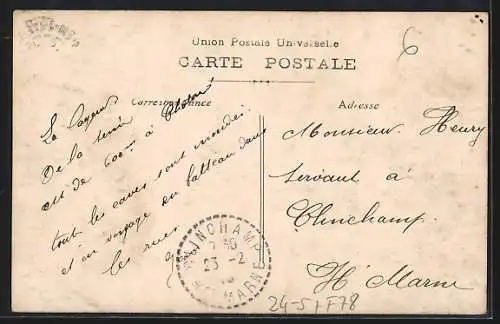 Union Postale Universelle
CARTE POSTALE
6
Correspondance
Adresse
La largeur
De la Seine
est de 600m à Choisi
tout les caves sont inondée
et on voyage en batteau dans
les rues
Monsieur Henry
Servant à
Clinchamp.
Hte Marne
CLINCHAMP
7 30
23 -2
MARNE
24-51 F78